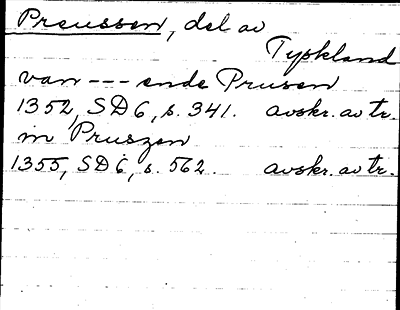 Preussen, del av
Tyskland
van --- ende Prusen
1352, SD 6, s. 341. avskr. av tr.
in Pruszen
1355, SD 6, s. 562. avskr. av tr.